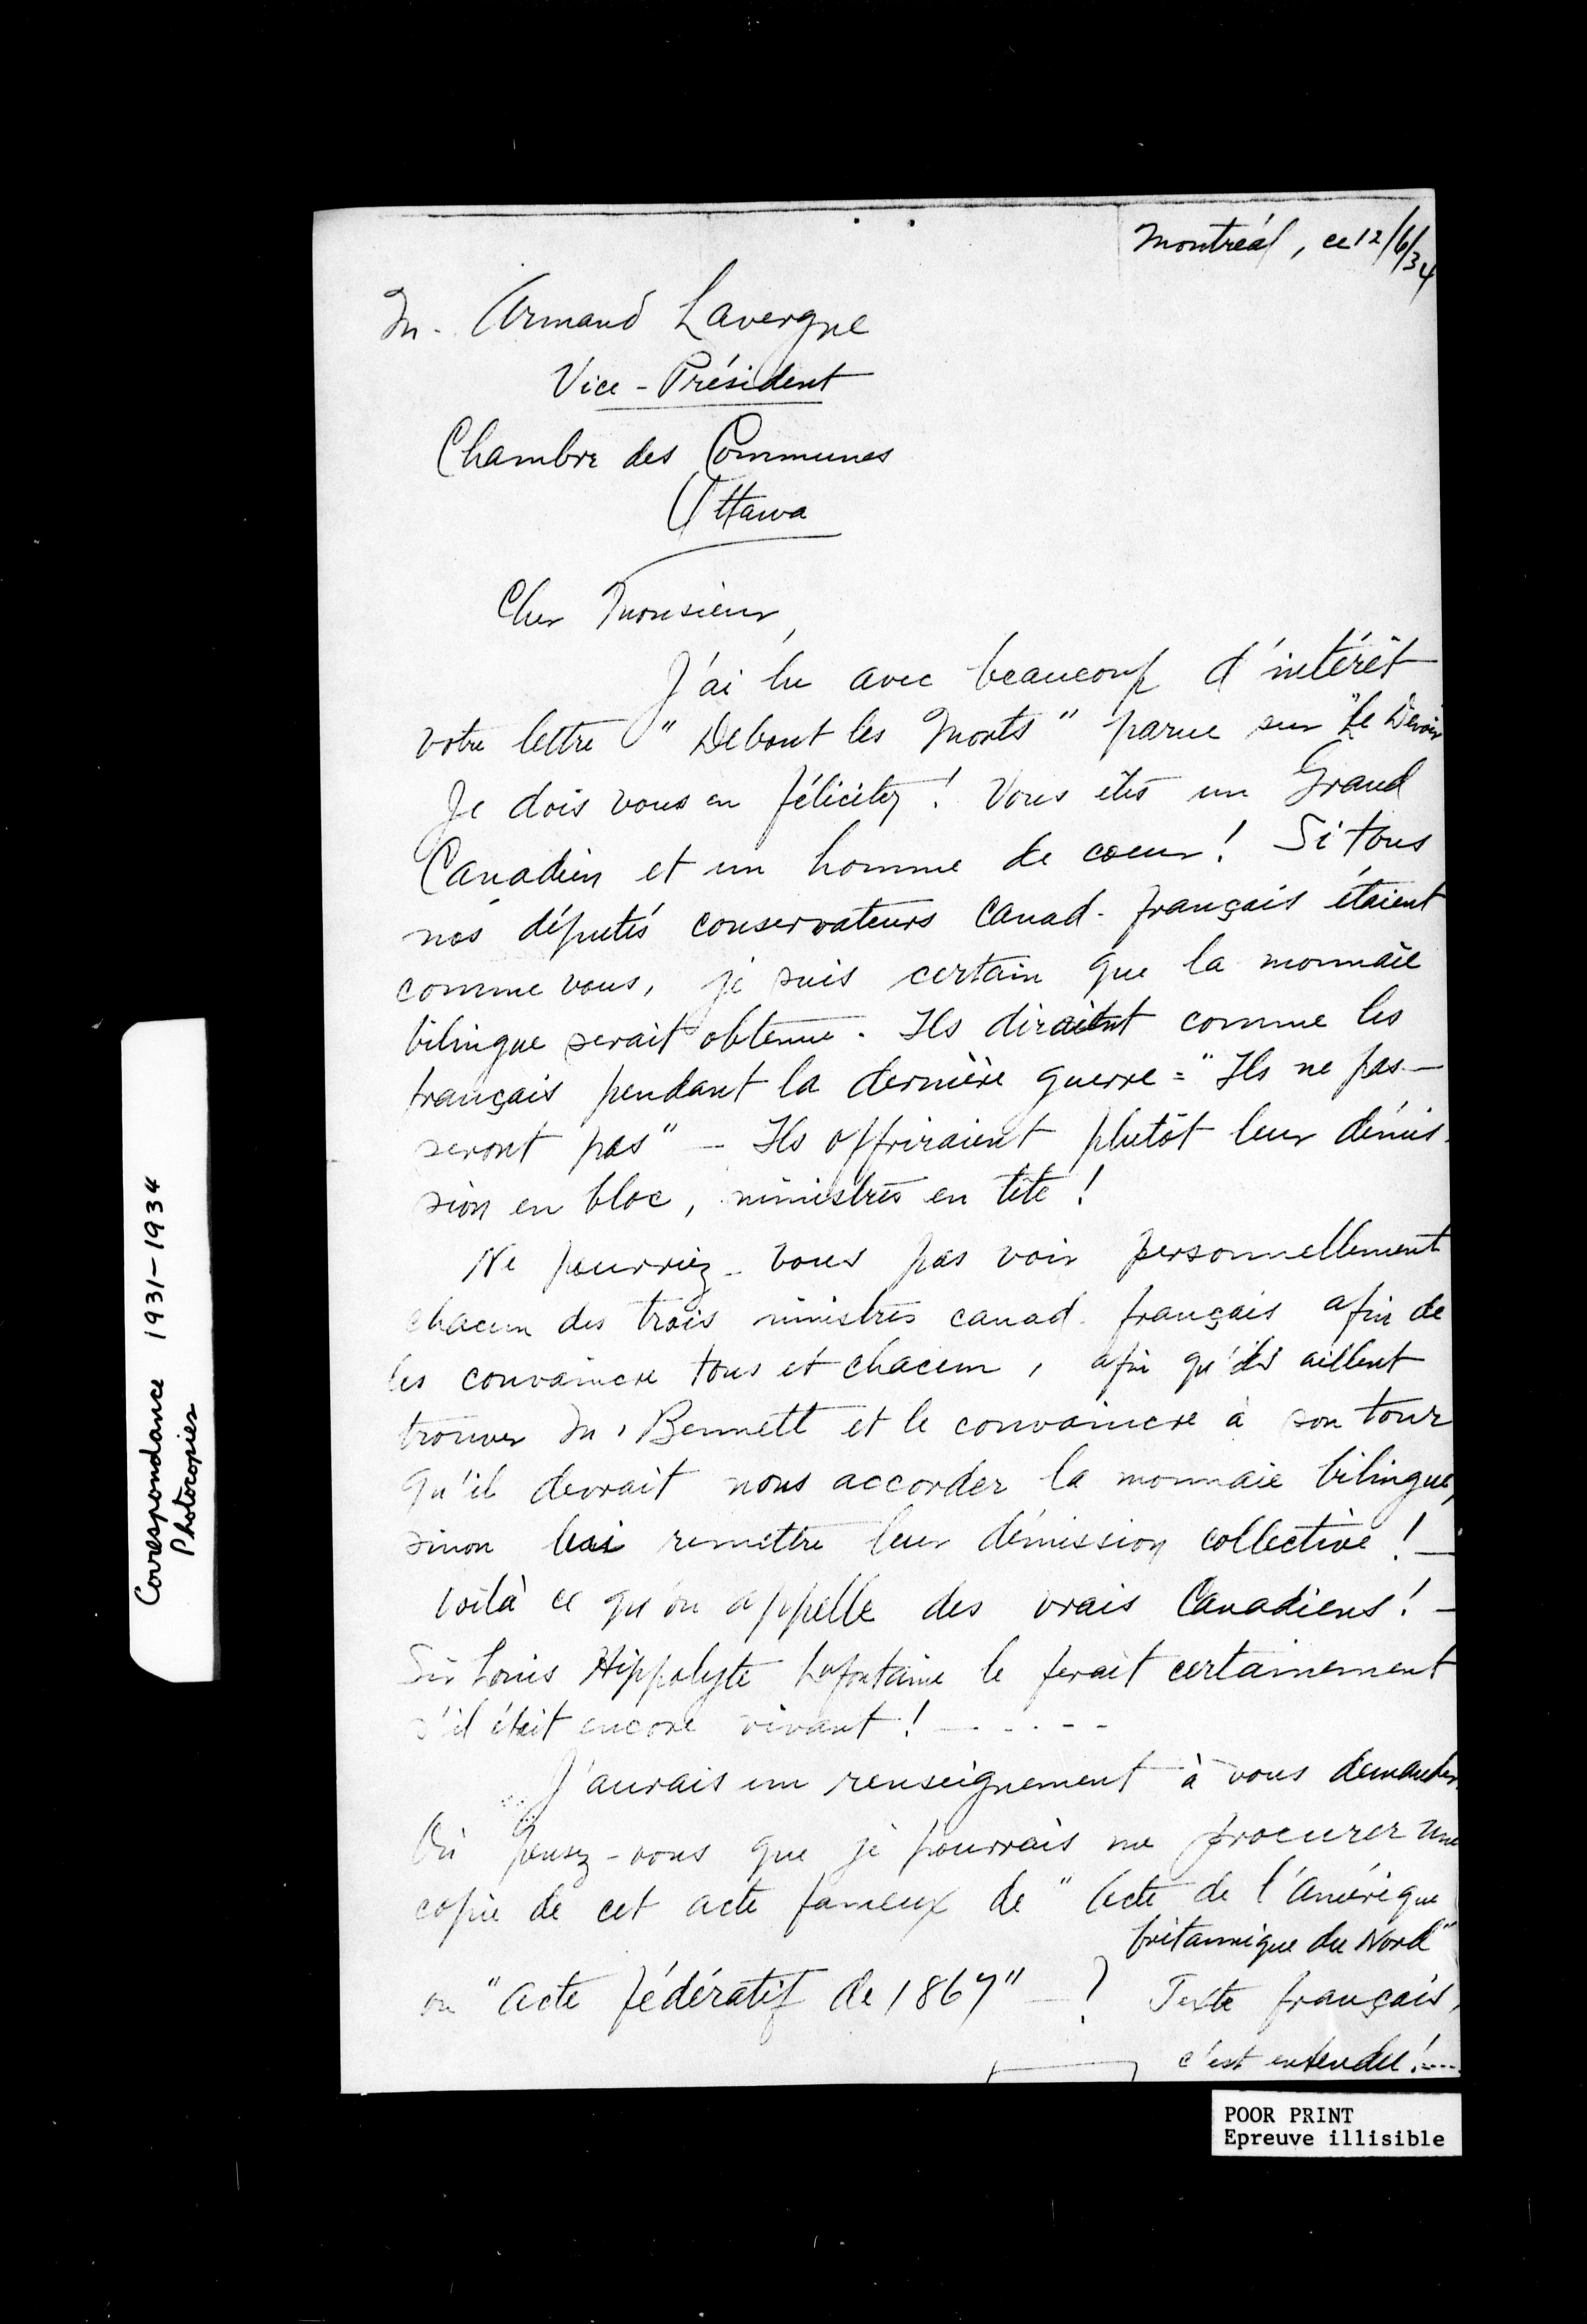 Montréal, ce 12/6/34
M. Armand Lavergne
Vice-Président
Chambre des Communes
Ottawa
Cher Monsieur,
J'ai lu avec beaucoup d'intérêt
votre lettre "Debout les Morts" parue sur "Le Devoir
Je dois vous en félicitez! Vous êtes un Grand
Canadien et un homme de coeur! Si tous
nos députés conservateurs Canad. français étaient
comme vous, je suis certain que la monnaie
bilingue serait obtenue. Ils diraient comme les
français pendant la dernière guerre = "Ils ne pas-
seront pas" - Ils offriraient plutôt leur démis-
sion en bloc, ministres en tête!
Ne pourriez-vous pas voir personnellement
chacun des trois ministres canad. français afin de
les convaincre tous et chacun, afin qu'ils aillent
trouver M. Bennett et le convaincre à son tour
qu'il devrait nous accorder la monnaie bilingue,
sinon lui remettre leur démission collective! -
Voilà ce qu'on appelle des vrais Canadiens! -
Sir Louis Hippolyte Lafontaine le ferait certainement
s'il était encore vivant! - - - - -
J'aurais un renseignement à vous demander.
Où pensez-vous que je pourrais me procurer une
copie de cet acte fameux de "Acte de l'Amérique
britannique du Nord"
ou "Acte fédératif de 1867" - ? Texte français,
c'est entendu!....
Correspondance 1931-1934
Photocopies
POOR PRINT
Epreuve illisible